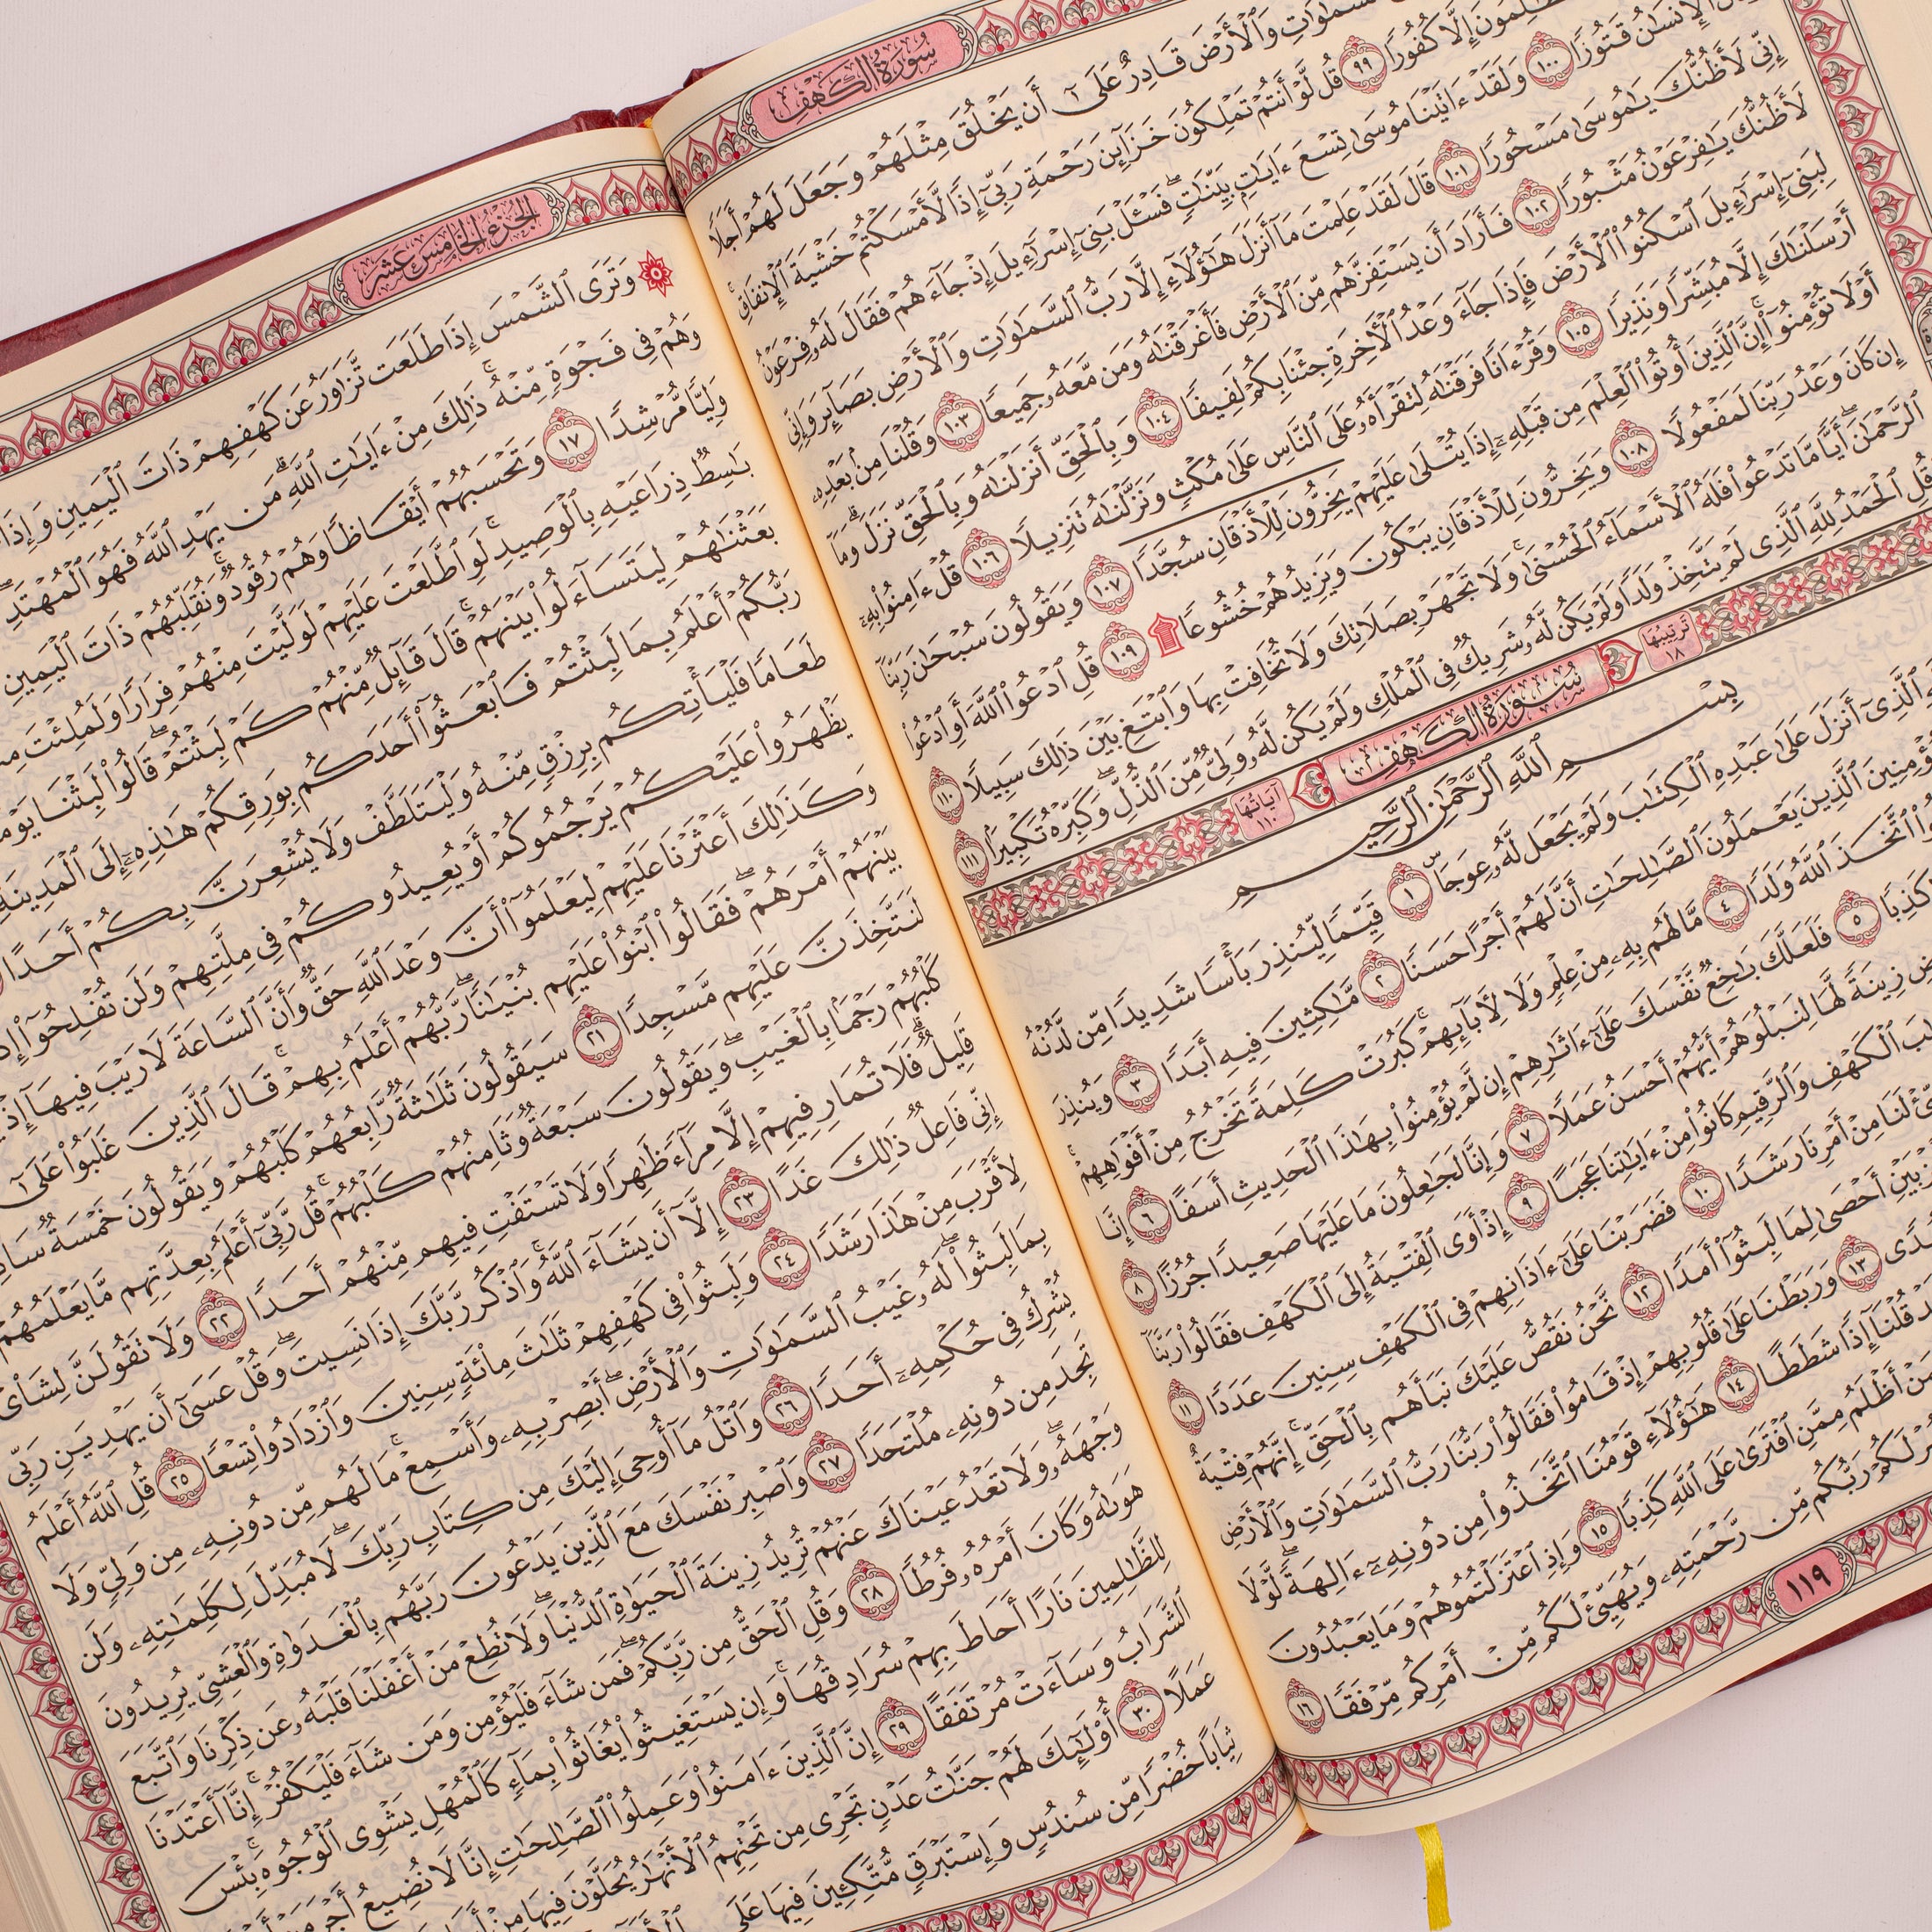 سُورَةُ الكَهْفِ
وَٱلْأَرْضَ قَادِرٌ عَلَىٰٓ أَن يَخْلُقَ مِثْلَهُمْ وَجَعَلَ لَهُمْ أَجَلًا
إِلَّا كُفُورًا ٩٩ قُل لَّوْ أَنتُمْ تَمْلِكُونَ خَزَآئِنَ رَحْمَةِ رَبِّىٓ إِذًا لَّأَمْسَكْتُمْ خَشْيَةَ ٱلْإِنفَاقِ
ٱلْإِنسَٰنُ قَتُورًا ١٠٠ وَلَقَدْ ءَاتَيْنَا مُوسَىٰ تِسْعَ ءَايَٰتٍۭ بَيِّنَٰتٍ فَسْـَٔلْ بَنِىٓ إِسْرَٰٓءِيلَ إِذْ جَآءَهُمْ فَقَالَ لَهُۥ فِرْعَوْنُ
إِنِّى لَأَظُنُّكَ يَٰمُوسَىٰ مَسْحُورًا ١٠١ قَالَ لَقَدْ عَلِمْتَ مَآ أَنزَلَ هَٰٓؤُلَآءِ إِلَّا رَبُّ ٱلسَّمَٰوَٰتِ وَٱلْأَرْضِ بَصَآئِرَ وَإِنِّى
لَأَظُنُّكَ يَٰفِرْعَوْنُ مَثْبُورًا ١٠٢ فَأَرَادَ أَن يَسْتَفِزَّهُم مِّنَ ٱلْأَرْضِ فَأَغْرَقْنَٰهُ وَمَن مَّعَهُۥ جَمِيعًا ١٠٣ وَقُلْنَا مِنۢ بَعْدِهِۦ
لِبَنِىٓ إِسْرَٰٓءِيلَ ٱسْكُنُوا۟ ٱلْأَرْضَ فَإِذَا جَآءَ وَعْدُ ٱلْءَاخِرَةِ جِئْنَا بِكُمْ لَفِيفًا ١٠٤ وَبِٱلْحَقِّ أَنزَلْنَٰهُ وَبِٱلْحَقِّ نَزَلَ وَمَآ
أَرْسَلْنَٰكَ إِلَّا مُبَشِّرًا وَنَذِيرًا ١٠٥ وَقُرْءَانًا فَرَقْنَٰهُ لِتَقْرَأَهُۥ عَلَى ٱلنَّاسِ عَلَىٰ مُكْثٍ وَنَزَّلْنَٰهُ تَنزِيلًا ١٠٦ قُلْ ءَامِنُوا۟ بِهِۦٓ
أَوْ لَا تُؤْمِنُوٓا۟ إِنَّ ٱلَّذِينَ أُوتُوا۟ ٱلْعِلْمَ مِن قَبْلِهِۦٓ إِذَا يُتْلَىٰ عَلَيْهِمْ يَخِرُّونَ لِلْأَذْقَانِ سُجَّدًا ١٠٧ وَيَقُولُونَ سُبْحَٰنَ رَبِّنَآ
إِن كَانَ وَعْدُ رَبِّنَا لَمَفْعُولًا ١٠٨ وَيَخِرُّونَ لِلْأَذْقَانِ يَبْكُونَ وَيَزِيدُهُمْ خُشُوعًا ۩ ١٠٩ قُلِ ٱدْعُوا۟ ٱللَّهَ أَوِ ٱدْعُوا۟
ٱلرَّحْمَٰنَ أَيًّا مَّا تَدْعُوا۟ فَلَهُ ٱلْأَسْمَآءُ ٱلْحُسْنَىٰ وَلَا تَجْهَرْ بِصَلَاتِكَ وَلَا تُخَافِتْ بِهَا وَٱبْتَغِ بَيْنَ ذَٰلِكَ سَبِيلًا ١١٠
وَقُلِ ٱلْحَمْدُ لِلَّهِ ٱلَّذِى لَمْ يَتَّخِذْ وَلَدًا وَلَمْ يَكُن لَّهُۥ شَرِيكٌ فِى ٱلْمُلْكِ وَلَمْ يَكُن لَّهُۥ وَلِىٌّ مِّنَ ٱلذُّلِّ وَكَبِّرْهُ تَكْبِيرًۢا ١١١
تَرتيبُهَا ١٨ سُورَةُ الكَهْفِ آيَاتُهَا ١١٠
بِسْمِ ٱللَّهِ ٱلرَّحْمَٰنِ ٱلرَّحِيمِ
ٱلَّذِىٓ أَنزَلَ عَلَىٰ عَبْدِهِ ٱلْكِتَٰبَ وَلَمْ يَجْعَل لَّهُۥ عِوَجَا ١ قَيِّمًا لِّيُنذِرَ بَأْسًا شَدِيدًا مِّن لَّدُنْهُ
ٱلَّذِينَ يَعْمَلُونَ ٱلصَّٰلِحَٰتِ أَنَّ لَهُمْ أَجْرًا حَسَنًا ٢ مَّٰكِثِينَ فِيهِ أَبَدًا ٣ وَيُنذِرَ
ٱتَّخَذَ ٱللَّهُ وَلَدًا ٤ مَّا لَهُم بِهِۦ مِنْ عِلْمٍ وَلَا لِءَابَآئِهِمْ كَبُرَتْ كَلِمَةً تَخْرُجُ مِنْ أَفْوَٰهِهِمْ
كَذِبًا ٥ فَلَعَلَّكَ بَٰخِعٌ نَّفْسَكَ عَلَىٰٓ ءَاثَٰرِهِمْ إِن لَّمْ يُؤْمِنُوا۟ بِهَٰذَا ٱلْحَدِيثِ أَسَفًا ٦ إِنَّا
زِينَةً لَّهَا لِنَبْلُوَهُمْ أَيُّهُمْ أَحْسَنُ عَمَلًا ٧ وَإِنَّا لَجَٰعِلُونَ مَا عَلَيْهَا صَعِيدًا جُرُزًا ٨
ٱلْكَهْفِ وَٱلرَّقِيمِ كَانُوا۟ مِنْ ءَايَٰتِنَا عَجَبًا ٩ إِذْ أَوَى ٱلْفِتْيَةُ إِلَى ٱلْكَهْفِ فَقَالُوا۟ رَبَّنَآ
لَنَا مِنْ أَمْرِنَا رَشَدًا ١٠ فَضَرَبْنَا عَلَىٰٓ ءَاذَانِهِمْ فِى ٱلْكَهْفِ سِنِينَ عَدَدًا ١١
أَحْصَىٰ لِمَا لَبِثُوٓا۟ أَمَدًا ١٢ نَّحْنُ نَقُصُّ عَلَيْكَ نَبَأَهُم بِٱلْحَقِّ إِنَّهُمْ فِتْيَةٌ
١٣ وَرَبَطْنَا عَلَىٰ قُلُوبِهِمْ إِذْ قَامُوا۟ فَقَالُوا۟ رَبُّنَا رَبُّ ٱلسَّمَٰوَٰتِ وَٱلْأَرْضِ
قُلْنَآ إِذًا شَطَطًا ١٤ هَٰٓؤُلَآءِ قَوْمُنَا ٱتَّخَذُوا۟ مِن دُونِهِۦٓ ءَالِهَةً لَّوْلَا
أَظْلَمُ مِمَّنِ ٱفْتَرَىٰ عَلَى ٱللَّهِ كَذِبًا ١٥ وَإِذِ ٱعْتَزَلْتُمُوهُمْ وَمَا يَعْبُدُونَ
لَكُمْ رَبُّكُم مِّن رَّحْمَتِهِۦ وَيُهَيِّئْ لَكُم مِّنْ أَمْرِكُم مِّرْفَقًا ١٦
١١٩
الجُزءُ الخَامِسَ عَشَرَ
۞ وَتَرَى ٱلشَّمْسَ إِذَا طَلَعَت تَّزَٰوَرُ عَن كَهْفِهِمْ ذَاتَ ٱلْيَمِينِ وَإِذَا
وَهُمْ فِى فَجْوَةٍ مِّنْهُ ذَٰلِكَ مِنْ ءَايَٰتِ ٱللَّهِ مَن يَهْدِ ٱللَّهُ فَهُوَ ٱلْمُهْتَدِ
وَلِيًّا مُّرْشِدًا ١٧ وَتَحْسَبُهُمْ أَيْقَاظًا وَهُمْ رُقُودٌ وَنُقَلِّبُهُمْ ذَاتَ ٱلْيَمِينِ
بَٰسِطٌ ذِرَاعَيْهِ بِٱلْوَصِيدِ لَوِ ٱطَّلَعْتَ عَلَيْهِمْ لَوَلَّيْتَ مِنْهُمْ فِرَارًا وَلَمُلِئْتَ
بَعَثْنَٰهُمْ لِيَتَسَآءَلُوا۟ بَيْنَهُمْ قَالَ قَآئِلٌ مِّنْهُمْ كَمْ لَبِثْتُمْ قَالُوا۟ لَبِثْنَا
رَبُّكُمْ أَعْلَمُ بِمَا لَبِثْتُمْ فَٱبْعَثُوٓا۟ أَحَدَكُم بِوَرِقِكُمْ هَٰذِهِۦٓ إِلَى ٱلْمَدِينَةِ
طَعَامًا فَلْيَأْتِكُم بِرِزْقٍ مِّنْهُ وَلْيَتَلَطَّفْ وَلَا يُشْعِرَنَّ بِكُمْ أَحَدًا
يَظْهَرُوا۟ عَلَيْكُمْ يَرْجُمُوكُمْ أَوْ يُعِيدُوكُمْ فِى مِلَّتِهِمْ وَلَن تُفْلِحُوٓا۟
وَكَذَٰلِكَ أَعْثَرْنَا عَلَيْهِمْ لِيَعْلَمُوٓا۟ أَنَّ وَعْدَ ٱللَّهِ حَقٌّ وَأَنَّ ٱلسَّاعَةَ لَا رَيْبَ فِيهَآ
بَيْنَهُمْ أَمْرَهُمْ فَقَالُوا۟ ٱبْنُوا۟ عَلَيْهِم بُنْيَٰنًا رَّبُّهُمْ أَعْلَمُ بِهِمْ قَالَ ٱلَّذِينَ غَلَبُوا۟ عَلَىٰٓ
لَنَتَّخِذَنَّ عَلَيْهِم مَّسْجِدًا ٢١ سَيَقُولُونَ ثَلَٰثَةٌ رَّابِعُهُمْ كَلْبُهُمْ وَيَقُولُونَ خَمْسَةٌ
كَلْبُهُمْ رَجْمًۢا بِٱلْغَيْبِ وَيَقُولُونَ سَبْعَةٌ وَثَامِنُهُمْ كَلْبُهُمْ قُل رَّبِّىٓ أَعْلَمُ بِعِدَّتِهِم مَّا يَعْلَمُهُمْ
قَلِيلٌ فَلَا تُمَارِ فِيهِمْ إِلَّا مِرَآءً ظَٰهِرًا وَلَا تَسْتَفْتِ فِيهِم مِّنْهُمْ أَحَدًا ٢٢ وَلَا تَقُولَنَّ لِشَا۟ىْءٍ
إِنِّى فَاعِلٌ ذَٰلِكَ غَدًا ٢٣ إِلَّآ أَن يَشَآءَ ٱللَّهُ وَٱذْكُر رَّبَّكَ إِذَا نَسِيتَ وَقُلْ عَسَىٰٓ أَن يَهْدِيَنِ رَبِّى
لِأَقْرَبَ مِنْ هَٰذَا رَشَدًا ٢٤ وَلَبِثُوا۟ فِى كَهْفِهِمْ ثَلَٰثَ مِا۟ئَةٍ سِنِينَ وَٱزْدَادُوا۟ تِسْعًا ٢٥ قُلِ ٱللَّهُ أَعْلَمُ
بِمَا لَبِثُوا۟ لَهُۥ غَيْبُ ٱلسَّمَٰوَٰتِ وَٱلْأَرْضِ أَبْصِرْ بِهِۦ وَأَسْمِعْ مَا لَهُم مِّن دُونِهِۦ مِن وَلِىٍّ وَلَا
يُشْرِكُ فِى حُكْمِهِۦٓ أَحَدًا ٢٦ وَٱتْلُ مَآ أُوحِىَ إِلَيْكَ مِن كِتَابِ رَبِّكَ لَا مُبَدِّلَ لِكَلِمَٰتِهِۦ وَلَن
تَجِدَ مِن دُونِهِۦ مُلْتَحَدًا ٢٧ وَٱصْبِرْ نَفْسَكَ مَعَ ٱلَّذِينَ يَدْعُونَ رَبَّهُم بِٱلْغَدَوٰةِ وَٱلْعَشِىِّ يُرِيدُونَ
وَجْهَهُۥ وَلَا تَعْدُ عَيْنَاكَ عَنْهُمْ تُرِيدُ زِينَةَ ٱلْحَيَوٰةِ ٱلدُّنْيَا وَلَا تُطِعْ مَنْ أَغْفَلْنَا قَلْبَهُۥ عَن ذِكْرِنَا وَٱتَّبَعَ
هَوَىٰهُ وَكَانَ أَمْرُهُۥ فُرُطًا ٢٨ وَقُلِ ٱلْحَقُّ مِن رَّبِّكُمْ فَمَن شَآءَ فَلْيُؤْمِن وَمَن شَآءَ فَلْيَكْفُرْ إِنَّآ أَعْتَدْنَا
لِلظَّٰلِمِينَ نَارًا أَحَاطَ بِهِمْ سُرَادِقُهَا وَإِن يَسْتَغِيثُوا۟ يُغَاثُوا۟ بِمَآءٍ كَٱلْمُهْلِ يَشْوِى ٱلْوُجُوهَ بِئْسَ
ٱلشَّرَابُ وَسَآءَتْ مُرْتَفَقًا ٢٩ إِنَّ ٱلَّذِينَ ءَامَنُوا۟ وَعَمِلُوا۟ ٱلصَّٰلِحَٰتِ إِنَّا لَا نُضِيعُ أَجْرَ
عَمَلًا ٣٠ أُو۟لَٰٓئِكَ لَهُمْ جَنَّٰتُ عَدْنٍ تَجْرِى مِن تَحْتِهِمُ ٱلْأَنْهَٰرُ يُحَلَّوْنَ فِيهَا مِنْ
ثِيَابًا خُضْرًا مِّن سُندُسٍ وَإِسْتَبْرَقٍ مُّتَّكِـِٔينَ فِيهَا عَلَى